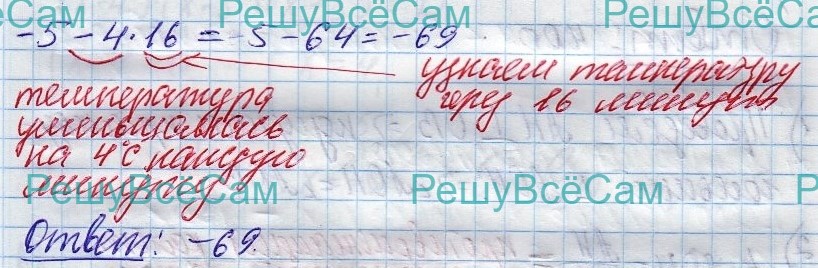 РешуВсёСам РешуВсёСам РешуВсёСам
-5 - 4 · 16 = -5 - 64 = -69
узнаем температуру
через 16 минут
температура
уменьшалась
на 4°С каждую
минуту
РешуВсёСам РешуВсёСам
Ответ: -69.